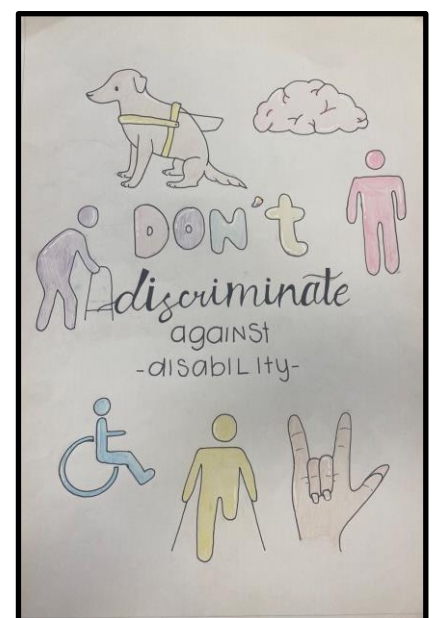 DON't
discriminate
against
-disability-